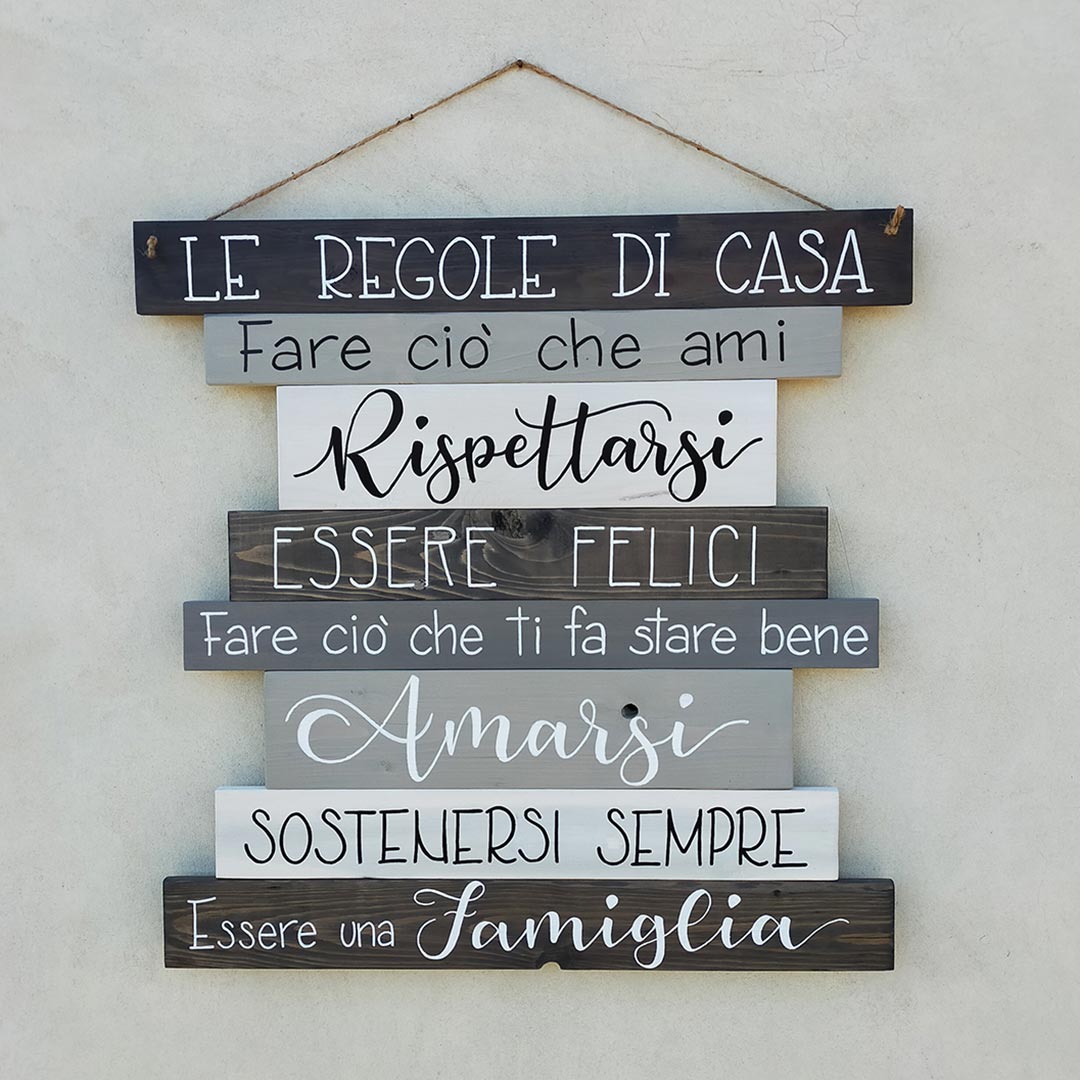 LE REGOLE DI CASA
Fare ciò che ami
Rispettarsi
ESSERE FELICI
Fare ciò che ti fa stare bene
Amarsi
SOSTENERSI SEMPRE
Essere una Famiglia